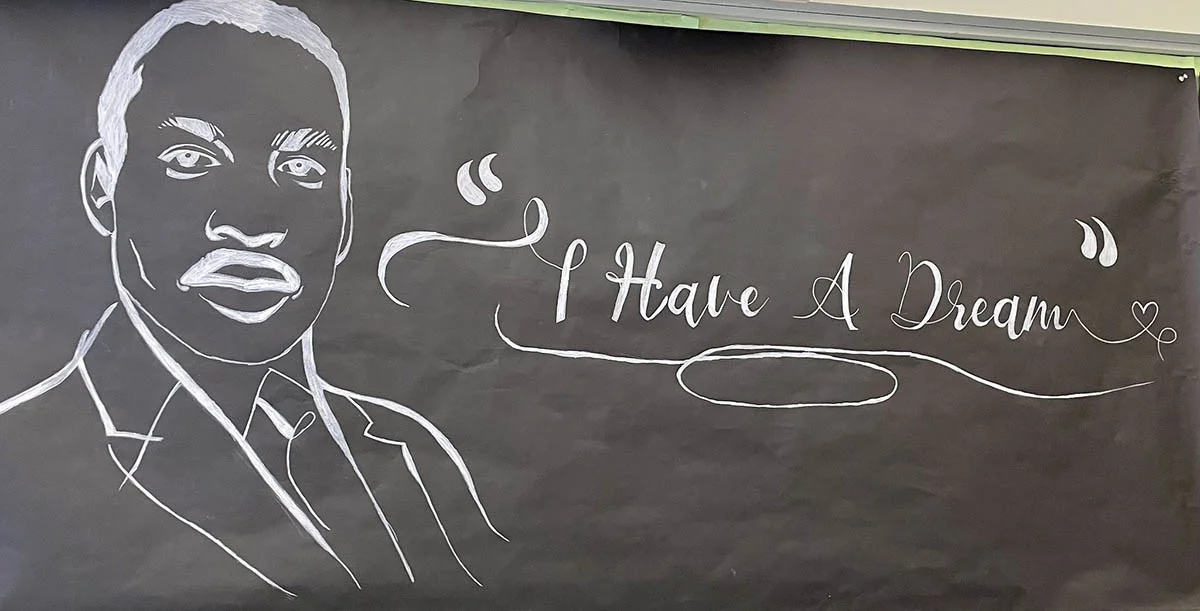 “I Have A Dream”